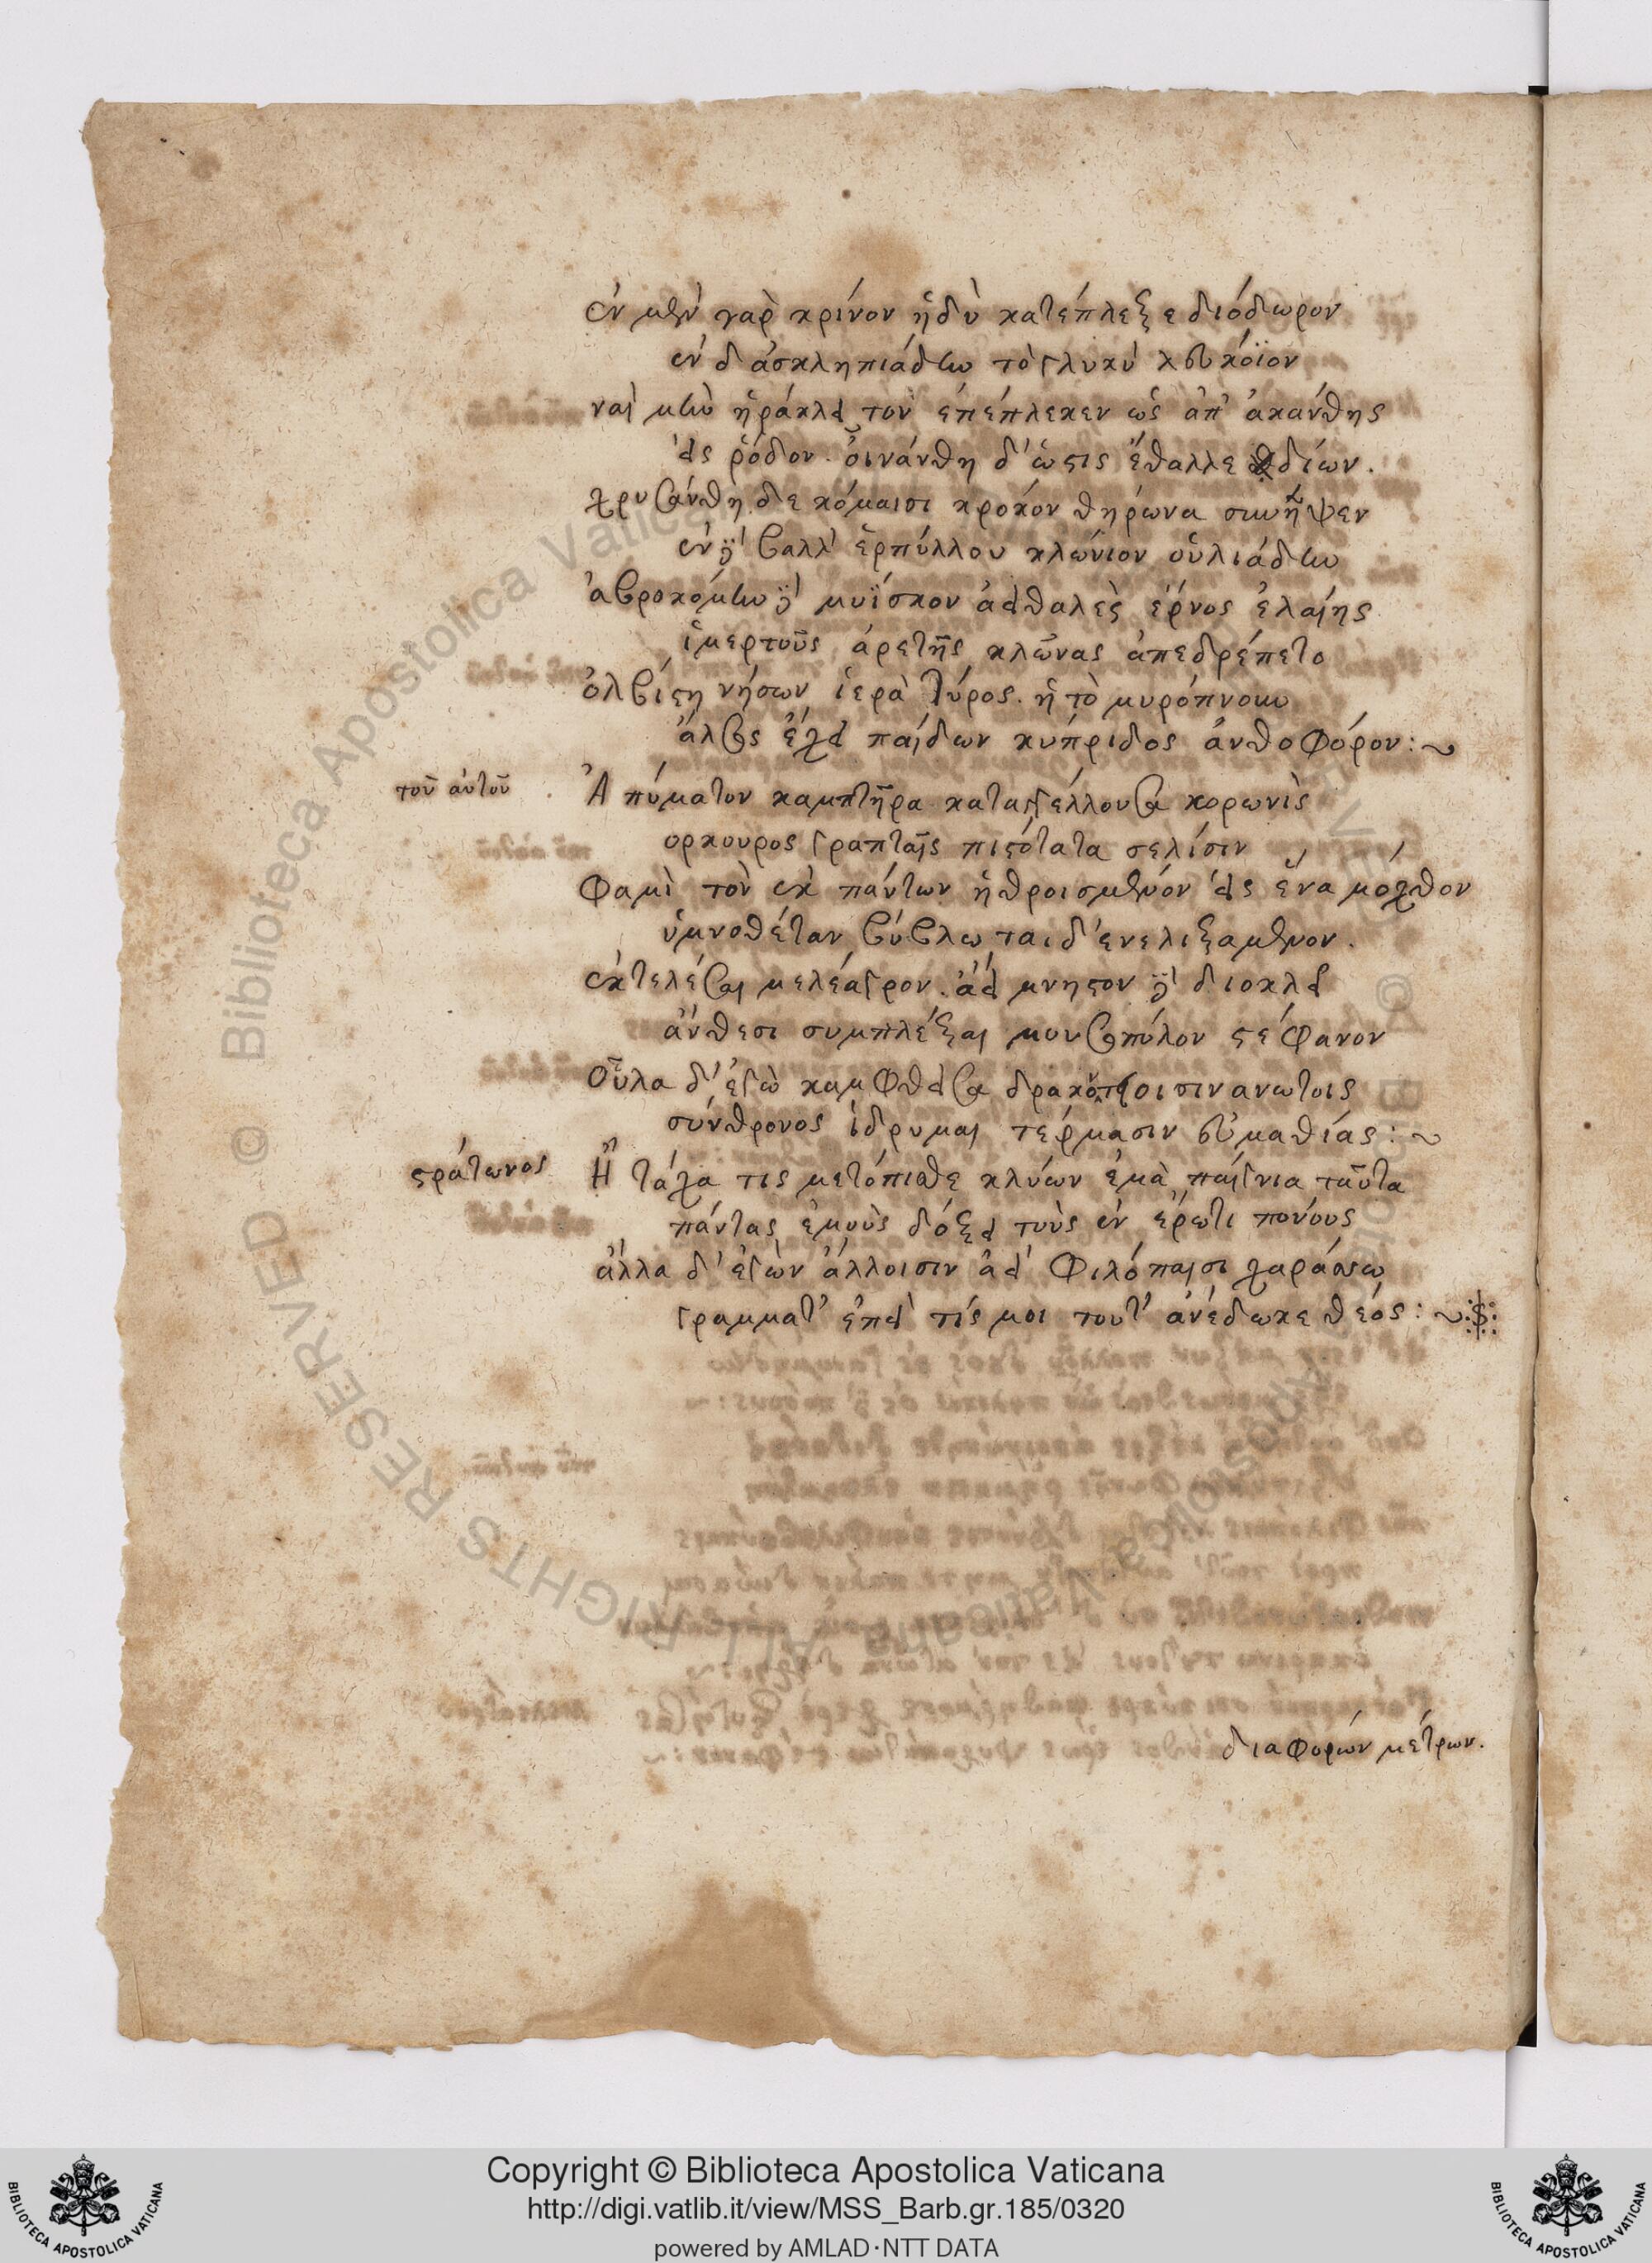 ἐν μὲν γὰρ κρίνον ἡδὺ κατέπλεξε διόδωρον
ἐν δ ἀσκληπιάδην τὸ γλυκὺ λευκόϊον
ναὶ μὴν ἡράκλει τὸν ἐπέπλεκεν ὡς ἀπ' ἀκάνθης
εἰς ῥόδον. οἰνάνθη δ' ὥς τις ἔθαλλε δίων.
χρυσάνθη δε κόμαισι κροκον θηρωνα συνῆψεν
ἐν δὲ βαλλ' ἑρπύλλου κλωνιον οὑλιάδην
ἁβροκόμην δὲ μυΐσκον ἀειθαλὲς ἔρνος ἐλαίης
ἱμερτοῦς ἀρετῆς κλῶνας ἀπεδρέπετο
ὀλβίστη νήσων ἱερὰ Τύρος. ἣ τὸ μυρόπνουν
ἄλσος ἔχει παίδων κύπριδος ἀνθοφόρον:~
τοῦ αὐτοῦ Ἁ πύματον καμπτῆρα καταγγέλλουσα κορωνὶς
ορκουρος γραπταῖς πιστότατα σελίσιν
Φαμὶ τὸν ἐκ πάντων ἠθροισμένον εἰς ἕνα μόχθον
ὑμνοθέταν βύβλω ταιδ' ενελιξαμενον.
ἐκτελέσαι μελέαγρον. ἀεὶ μνηστον δὲ διοκλεῖ
ἄνθεσι συμπλέξαι μουσοπόλον στέφανον
Οὖλα δ' ἐγὼ καμφθεῖσα δρακόντοισιν ανωτοις
σύνθρονος ἵδρυμαι τέρμασιν εὐμαθίας:~
στράτωνος Ἦ τάχα τις μετόπισθε κλύων ἐμὰ παίγνια ταῦτα
πάντας ἐμοὺς δόξει τοὺς ἐν ἔρωτι πόνους
ἄλλα δ' ἐγὼν ἄλλοισιν ἀεὶ Φιλόπαισι χαράσσω
γραμματ' ἐπεὶ τίς μοι τουτ' ἀνέδωκε θεός:~
διαφορών μέτρων.
Copyright © Biblioteca Apostolica Vaticana
http://digi.vatlib.it/view/MSS_Barb.gr.185/0320
powered by AMLAD·NTT DATA
BIBLIOTECA APOSTOLICA VATICANA
BIBLIOTECA APOSTOLICA VATICANA